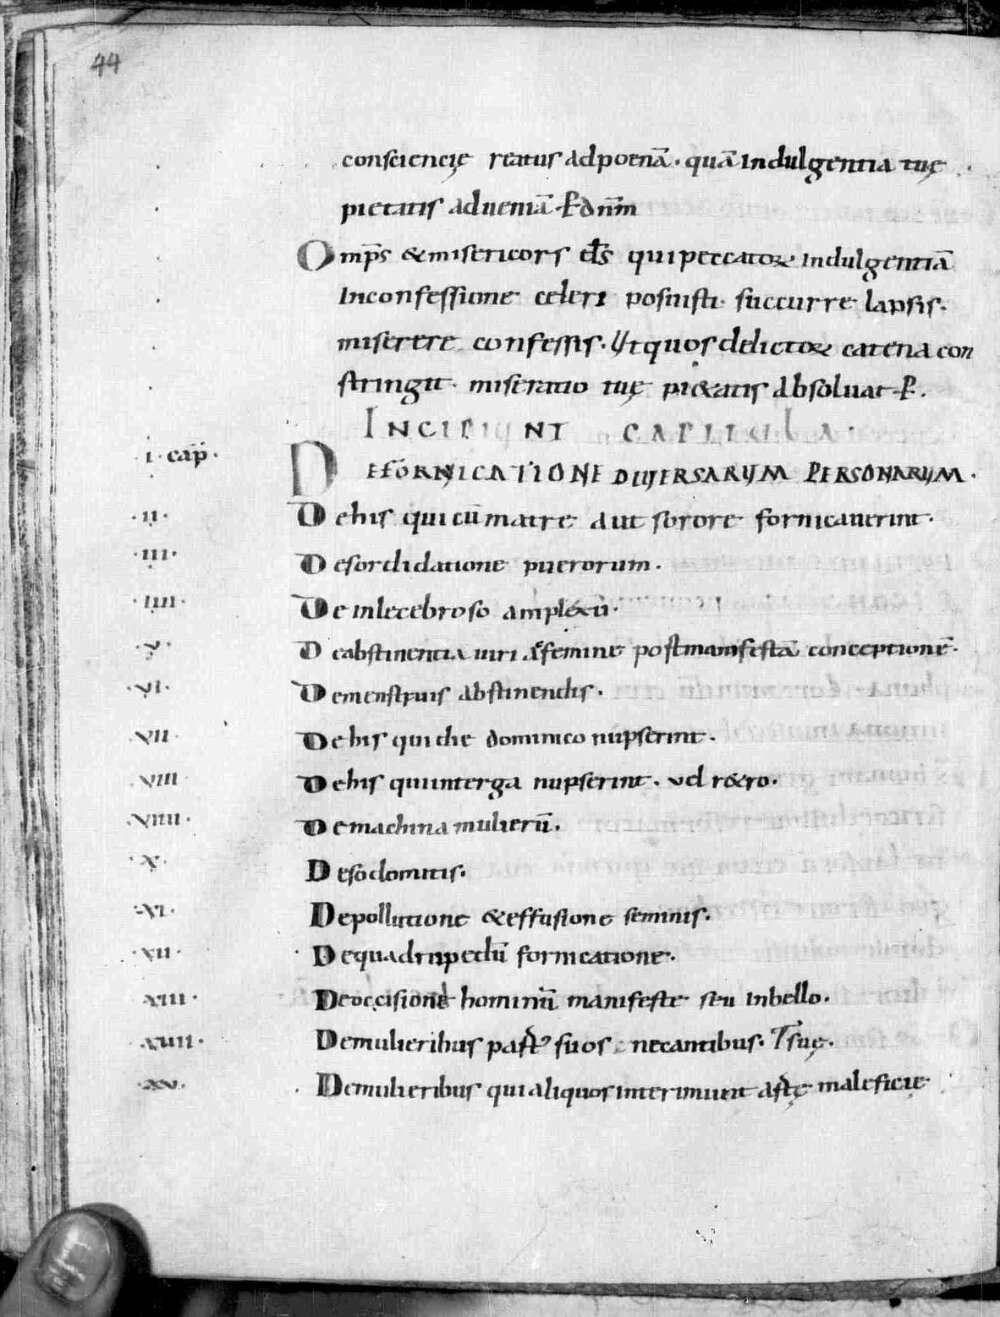 44
consciencię reatus ad poenā. quā indulgentia tuę
pietatis adueniā. P dnm̄
Omp̄s & misericors d̄s qui peccatoꝝ indulgentiā
In confessione celeri posuisti. succurre lapsis.
miserere confessis. Ut quos delictoꝝ catena con
stringit. miseratio tuę pi&atis absoluat. P.
INCIPIUNT CAPITULA.
.i. cap̄. DE FORNICATIONE DIUERSARUM PERSONARUM.
.ii. De his qui cū matre aut sorore fornicauerint.
.iii. De sordidatione puerorum.
.iiii. De inlecebroso amplexu.
.v. De abstinentia uiri & femine post manifestā conceptionē.
.vi. De menstruis abstinendis.
.vii. De his qui die dominico nupserint.
.viii. De his qui in terga nupserint. uel r&ro.
.viiii. De machina mulierū.
.x. De sodomitis.
.xi. De pollutione & effusione seminis.
.xii. De quadrupedū fornicatione.
.xiii. De occisione hominū manifeste seu in bello.
.xiiii. De mulieribus partꝰ suos necantibus.
.xv. De mulieribus qui aliquos interimunt arte maleficię